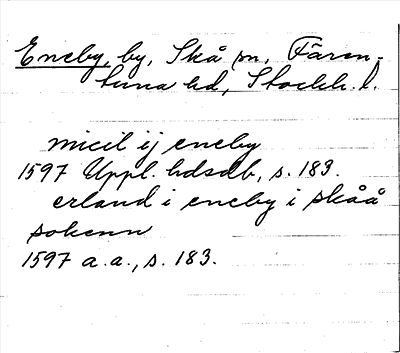 Eneby, by, Skå sn, Fären-
tuna hd, Stockh. l.
micil ij eneby
1597 Uppl. hdsdb, s. 183.
erland i eneby i skåå
sokenn
1597 a. a., s. 183.